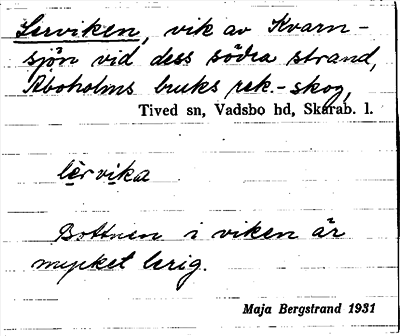 Lerviken, vik av Kvarn-
sjön vid dess södra strand,
Aboholms bruks rek.-skog,
Tived sn, Vadsbo hd, Skarab. l.
lèrvika
Bottnen i viken är
mycket lerig.
Maja Bergstrand 1931